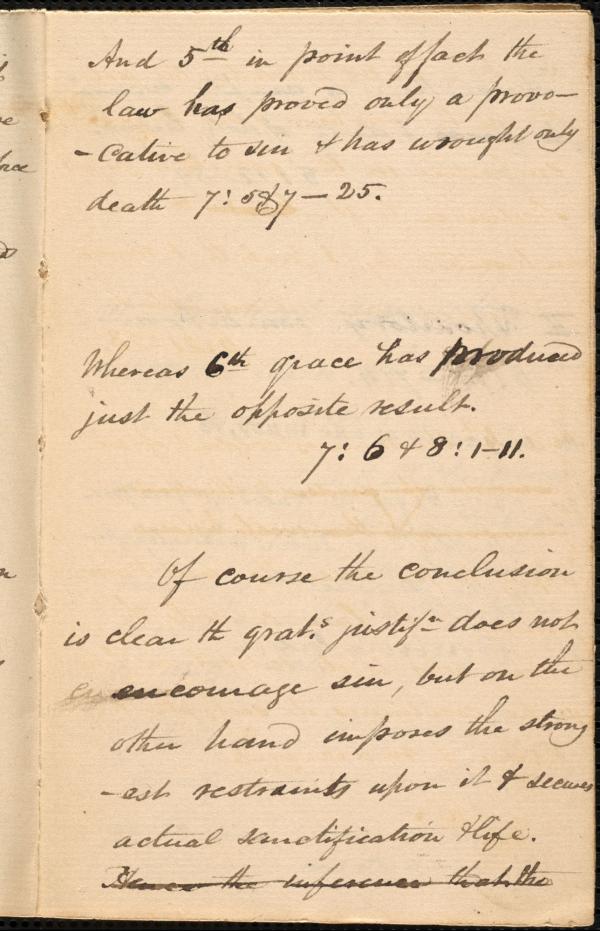 And 5th in point of fact the
law has proved only a provo-
-cative to sin & has wrought only
death 7: 5 & 7 — 25.
Whereas 6th grace has produced
just the opposite result.
7: 6 & 8: 1-11.
Of course the conclusion
is clear th grat.s justifn does not
encourage sin, but on the
other hand imposes the strong
-est restraints upon it & secures
actual sanctification & life.
Hence the inference that the